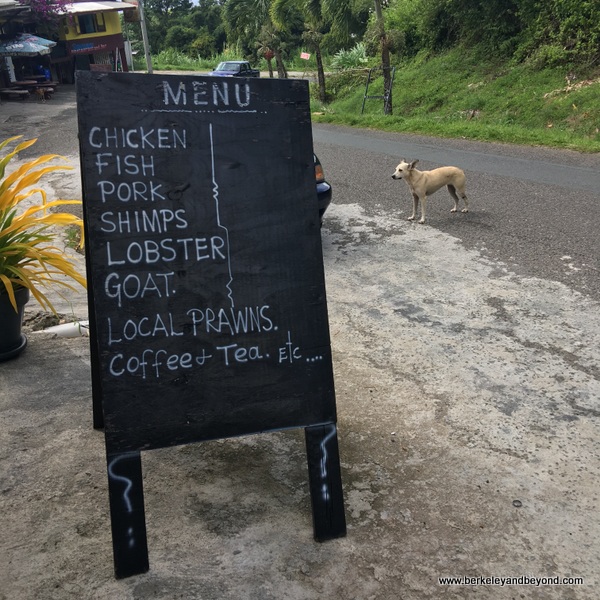 MENU
CHICKEN
FISH
PORK
SHIMPS
LOBSTER
GOAT.
LOCAL PRAWNS.
Coffee & Tea. Etc....
www.berkeleyandbeyond.com